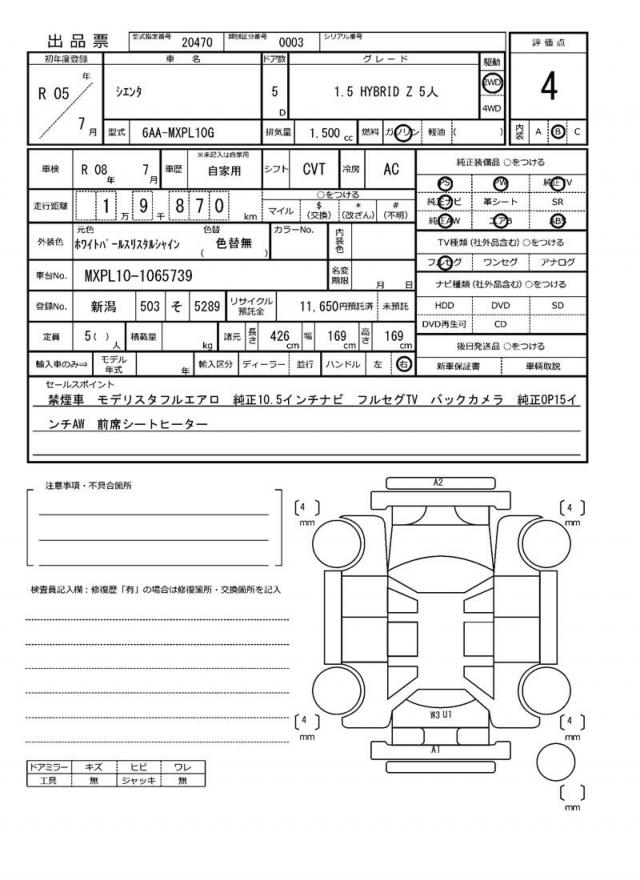 出品票 型式指定番号 20470 類別区分番号 0003 シリアル番号
評価点
4
内装 A B C
初年度登録 車名 ドア数 グレード 駆動
R 05 年 7 月 シエンタ 5 D 1.5 HYBRID Z 5人 2WD 4WD
型式 6AA-MXPL10G 排気量 1,500 cc 燃料 ガソリン 軽油 ( )
車検 R 08 年 7 月 車歴 ※未記入は自家用 自家用 シフト CVT 冷房 AC
走行距離 1 万 9 千 8 7 0 km ○をつける
マイル $ (交換) * (改ざん) # (不明)
外装色 元色 ホワイトパールスリスタルシャイン 色替 ( 色替無 ) カラーNo. 内装色
車台No. MXPL10-1065739 名変期限 月 日
登録No. 新潟 503 そ 5289 リサイクル預託金 11,650円預託済 未預託
定員 5( ) 人 積載量 kg 諸元 長さ 426 cm 幅 169 cm 高さ 169 cm
輸入車のみ⇒ モデル年式 年 輸入区分 ディーラー 並行 ハンドル 左 右
純正装備品 ○をつける
PS PW 純正TV
純正ナビ 革シート SR
純正AW エアB ABS
TV種類(社外品含む) ○をつける
フルセグ ワンセグ アナログ
ナビ種類(社外品含む) ○をつける
HDD DVD SD
DVD再生可 CD
後日発送品 ○をつける
新車保証書 車輌取説
セールスポイント
禁煙車 モデリスタフルエアロ 純正10.5インチナビ フルセグTV バックカメラ 純正OP15イ
ンチAW 前席シートヒーター
注意事項・不具合箇所
検査員記入欄：修復歴「有」の場合は修復箇所・交換箇所を記入
A2
[ 4 ] mm
[ 4 ] mm
W3 U1
[ 4 ] mm
[ 4 ] mm
A1
[ ] mm
ドアミラー キズ ヒビ ワレ
工具 無 ジャッキ 無